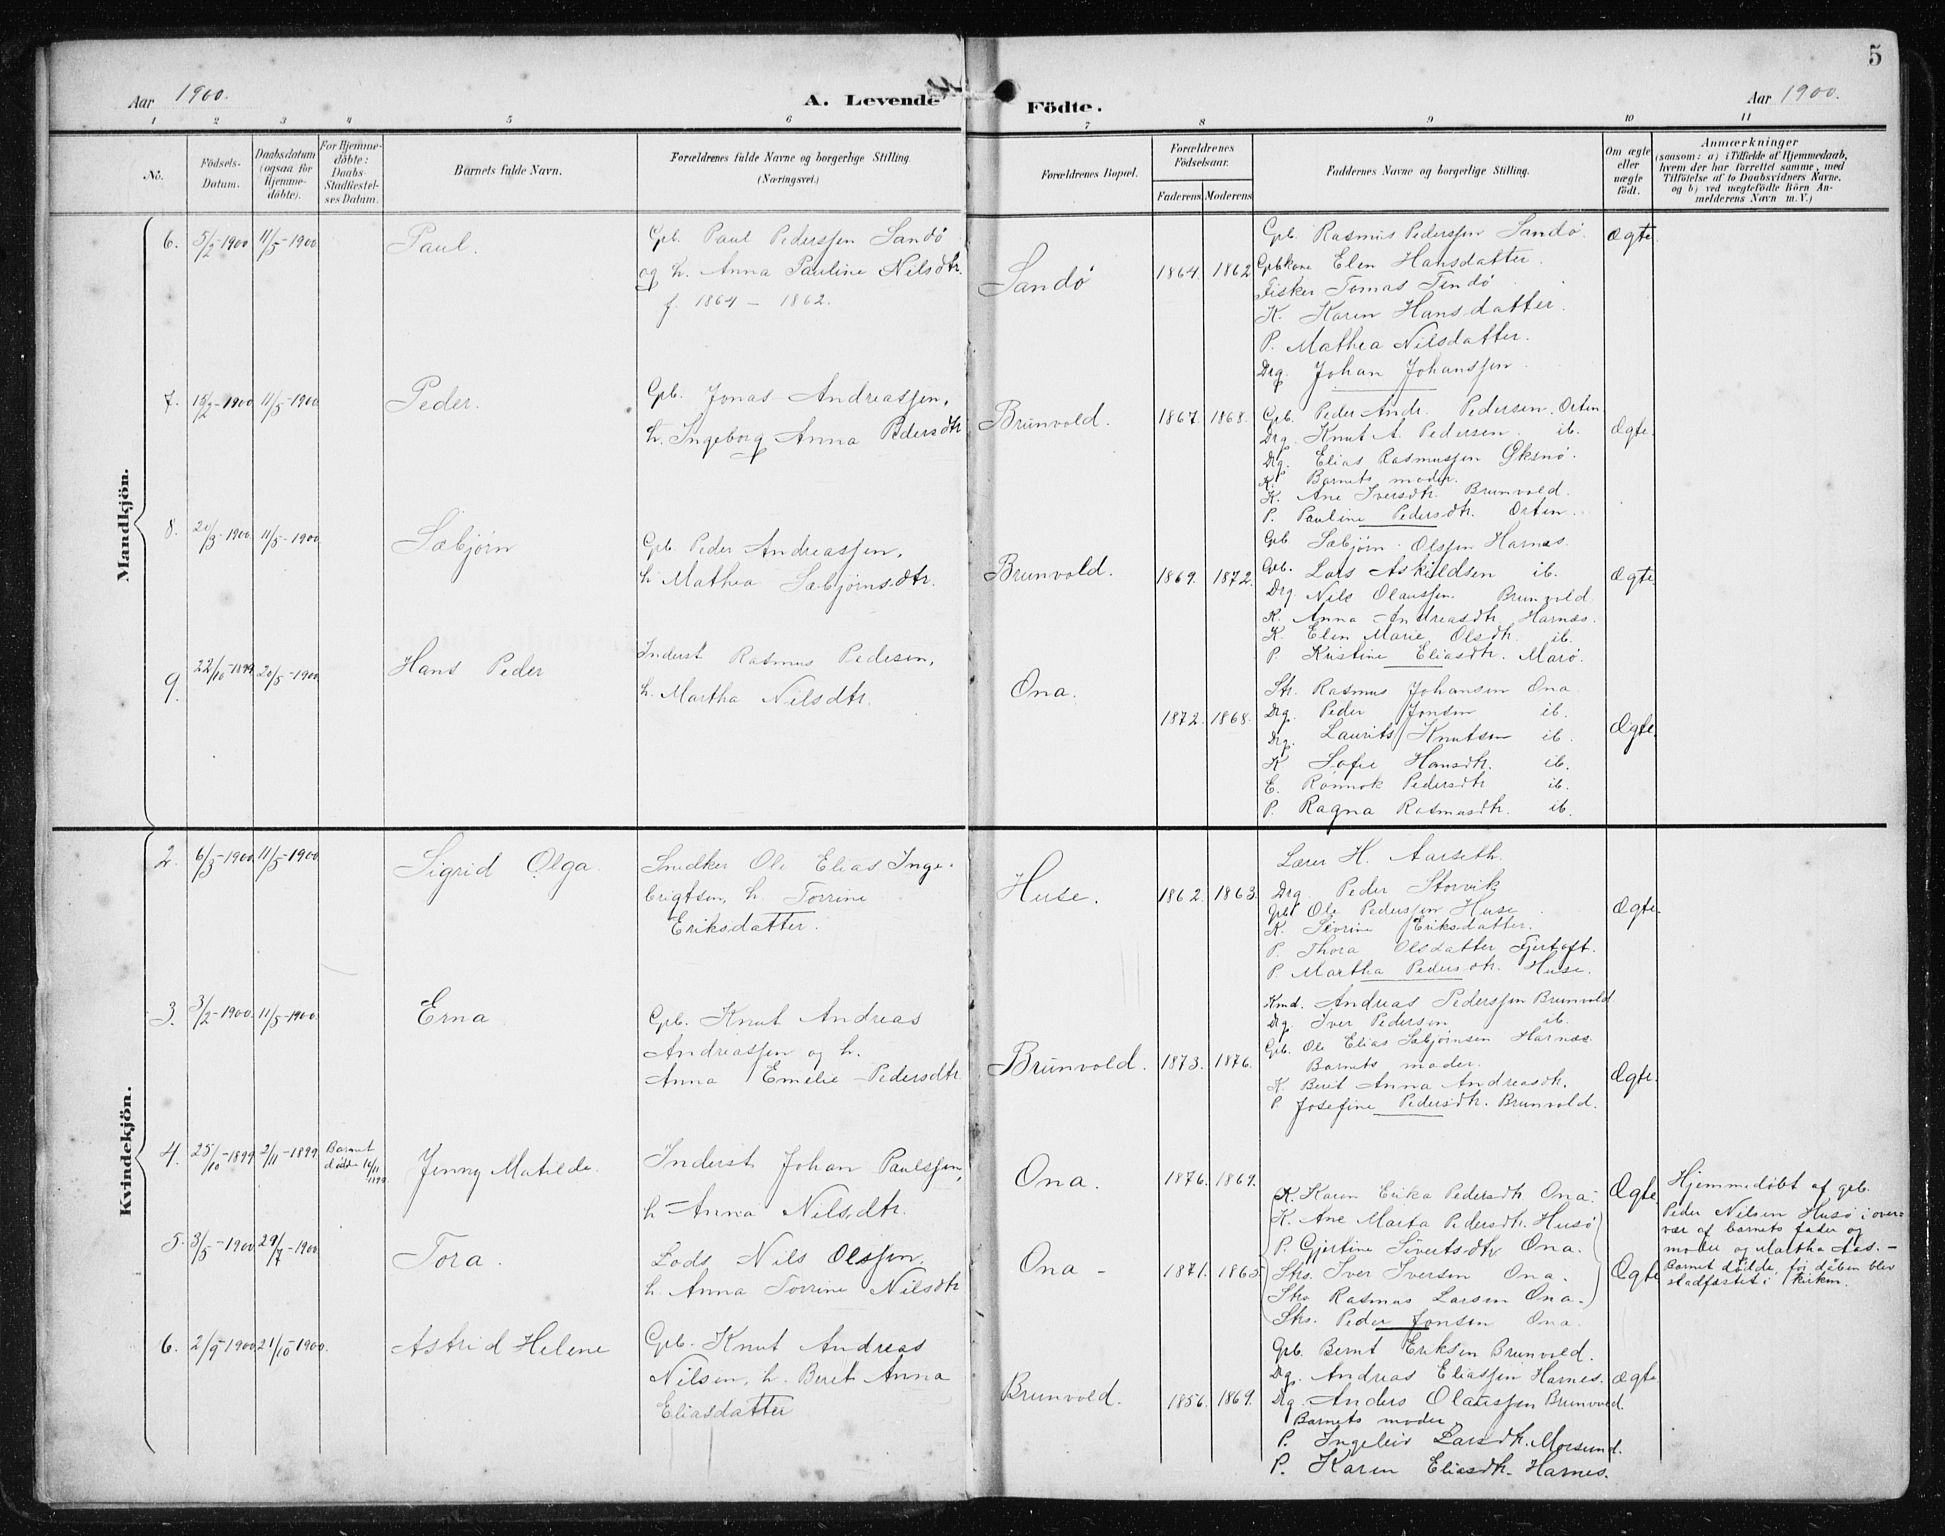 5
Aar 1900.
A. Levende Födte.
Aar 1900.
1 2 3 4 5 6 7 8 9 10 11
No.
Födsels-
Datum.
Daabsdatum
(ogsaa for
Hjemme-
döbte).
For Hjemme-
döbte:
Daabs-
Stadfæstel-
ses Datum.
Barnets fulde Navn.
Forældrenes fulde Navne og borgerlige Stilling.
(Næringsvei.)
Forældrenes Bopæl.
Forældrenes
Födselsaar.
Faderens Moderens
Faddernes Navne og borgerlige Stilling.
Om ægte
eller
uægte
födt.
Anmærkninger
(saasom: a) i Tilfælde af Hjemmedaab,
hvem der har forrettet samme, med
Tilföielse af to Daabsvidners Navne,
og b) ved uægtefödte Börn An-
melderens Navn m. V.)
Mandkjön.
6. 5/2-1900 11/5-1900 Paul.
Gb. Paul Pederssen Sandö
og h. Anna Pauline Nilsdtr.
f. 1864 - 1862.
Sandö 1864 1862
Gb. Rasmus Pederssen Sandö.
Gbkone Elen Hansdatter.
Fisker Tomas Tendö
K. Karen Hansdatter.
P. Mathea Nilsdatter.
Drg. Johan Johanssen
Ægte.
7. 15/2-1900 11/5-1900 Peder.
Gb. Jonas Andreassen,
h. Ingeborg Anna Pedersdtr
Brunvold. 1867. 1868.
Gb. Peder Andr. Pedersen. Orten
Drg. Knut A. Pedersen. ib.
Drg. Elias Rasmussen
K. Barnets moder.
K. Ane Iversdtr. Brunvold.
P. Pauline Pedersdtr. Orten.
Ægte.
8. 20/3-1900 11/5-1900 Sæbjørn
Gb. Peder Andreassen,
h. Mathea Sæbjørnsdtr.
Brunvold. 1869. 1872.
Gb. Sæbjørn Olssen Harnæs.
Gb. Lars Askildsen ib.
Drg Nils Olaussen Brunvold
K. Anna Andreasdtr. Harnæs.
K. Elen Marie Olsdtr. ib.
P. Kristine Eliasdtr. Marö.
Ægte.
9. 22/10-1899 20/5-1900 Hans Peder
Inderst Rasmus Pedersen,
h. Martha Nilsdtr.
Ona. 1872. 1868.
Str. Rasmus Johansen Ona
Drg. Peder Jonsen ib.
Drg. Laurits Knutsen ib.
K Sofie Hansdtr. ib.
E. Rönnok Pedersdtr ib.
P. Ragna Rasmusdtr. ib.
Ægte.
Kvindekjön.
2. 6/3-1900 11/5-1900. Sigrid Olga
Snidker Ole Elias Inge-
brigtsen, h. Torrine
Eriksdatter.
Huse. 1862. 1863.
Lærer H. Aarseth.
Drg Peder Storvik
Gb. Ole Pederssen Huse
K. Sivrine Eriksdatter.
P. Thora Olsdatter Fjertoft.
P. Martha Pedersdtr. Huse.
Ægte.
3. 3/2-1900. 11/5-1900. Erna
Gb. Knut Andreas
Andreassen og h.
Anna Emelie Pedersdtr
Brunvold. 1873. 1876.
Kmd. Andreas Pederssen Brunvold
Drg. Iver Pedersen ib.
Gb. Ole Elias Sæbjørnsen Harnæs
Barnets moder.
K. Berit Anna Andreasdtr.
P. Josefine Pedersdtr. Brunvold.
Ægte.
4. 25/10-1899 2/11-1899 Barnet
döde 16/11
1899.
Jenny Matilde.
Inderst Johan Paulssen,
h - Anna Nilsdtr.
Ona. 1876. 1869.
K. Karen Erika Pedersdtr Ona.
K. Ane Marta Pedersdtr. Husö
P. Gjertine Sivertsdtr Ona.
Ægte
Hjemmedöbt af grb.
Peder Nilsen Husö i over-
vær af barnets fader og
moder og Martha Aas. -
Barnet döde, før dåben blev
stadfæstet i kirken.
5. 3/5-1900 29/7-1900. Tora.
Lods Nils Olssen,
h. Anna Torrine Nilsdtr
Ona - 1871. 1865
Strs. Iver Iversen Ona.
Strs. Rasmus Larsen Ona.
Strs. Peder Jonsen Ona.
Ægte
6. 2/9-1900 21/10-1900. Astrid Helene
Gb. Knut Andreas
Nilsen, h. Berit Anna
Eliasdatter
Brunvold. 1856. 1869.
Grb. Bernt Eriksen Brunvold.
Drg. Andreas Eliassen Harnes.
Drg. Anders Olaussen Brunvold.
Barnets moder
P. Ingeleiv Larsdtr. Morsund.
P. Karen Eliasdtr. Harnes.
Ægte